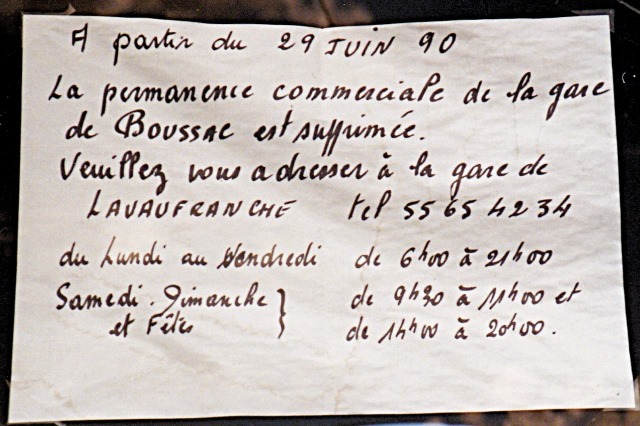 A partir du 29 JUIN 90
La permanence commerciale de la gare
de BOUSSAC est supprimée.
Veuillez vous adresser à la gare de
LAVAUFRANCHE tel 55 65 42 34
du Lundi au Vendredi de 6h00 à 21h00
Samedi. Dimanche } de 9h30 à 11h00 et
et Fêtes de 14h00 à 20h00.